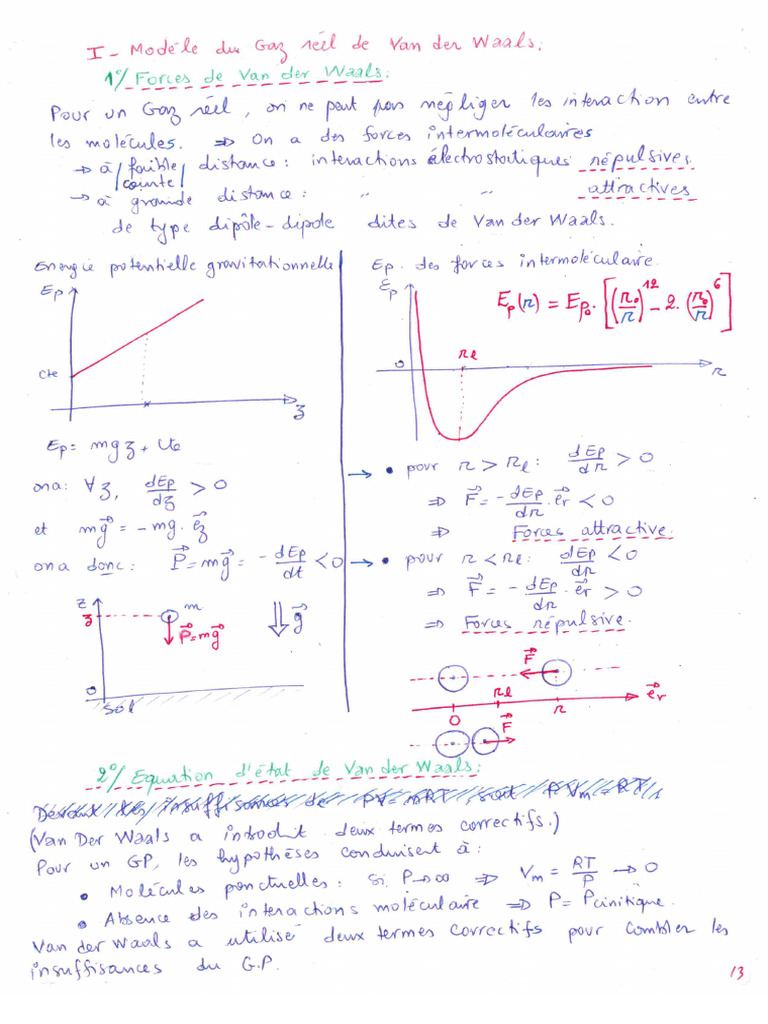 I - Modéle du Gaz réel de Van der Waals:
1°/ Forces de Van der Waals:
Pour un Gaz réel, on ne peut pas négliger les interaction entre
les molécules. ⇒ On a des forces intermoléculaires
→ à /faible/ distance : interactions électrostatiques répulsives.
/courte/
→ à grande distance : " " attractives
de type dipôle-dipole dites de Van der Waals.
Energie potentielle gravitationnelle
Ep
Cte
z
Ep = mgz + Cte
ona: ∀z, dEp/dz > 0
et mg⃗ = -mg. e⃗z
ona donc: P⃗ = mg⃗ = - dEp/dt < 0
z
z
m
P⃗=mg⃗
g⃗
0
Sol
Ep. des forces intermoléculaire.
Ep
Ep(r) = Ep₀. [(r₀/r)^12 - 2. (r₀/r)^6]
0
re
r
→ • pour r > Re: dEp/dr > 0
⇒ F⃗ = - dEp/dr . e⃗r < 0
⇒ Forces attractive.
→ • pour r < Re: dEp/dr < 0
⇒ F⃗ = - dEp/dr . e⃗r > 0
⇒ Forces répulsive.
F⃗
Re
e⃗r
0
r
F⃗
2°/ Equation d'état de Van der Waals:
(Van Der Waals a introduit deux termes correctifs.)
Pour un GP, les hypothéses conduisent à :
• Molécules ponctuelles : Si P→∞ ⇒ Vm = RT/P → 0
• Absence des interactions moléculaire ⇒ P = Pcinitique.
Van der Waals a utilisé deux termes correctifs pour combler les
insuffisances du G.P.
13